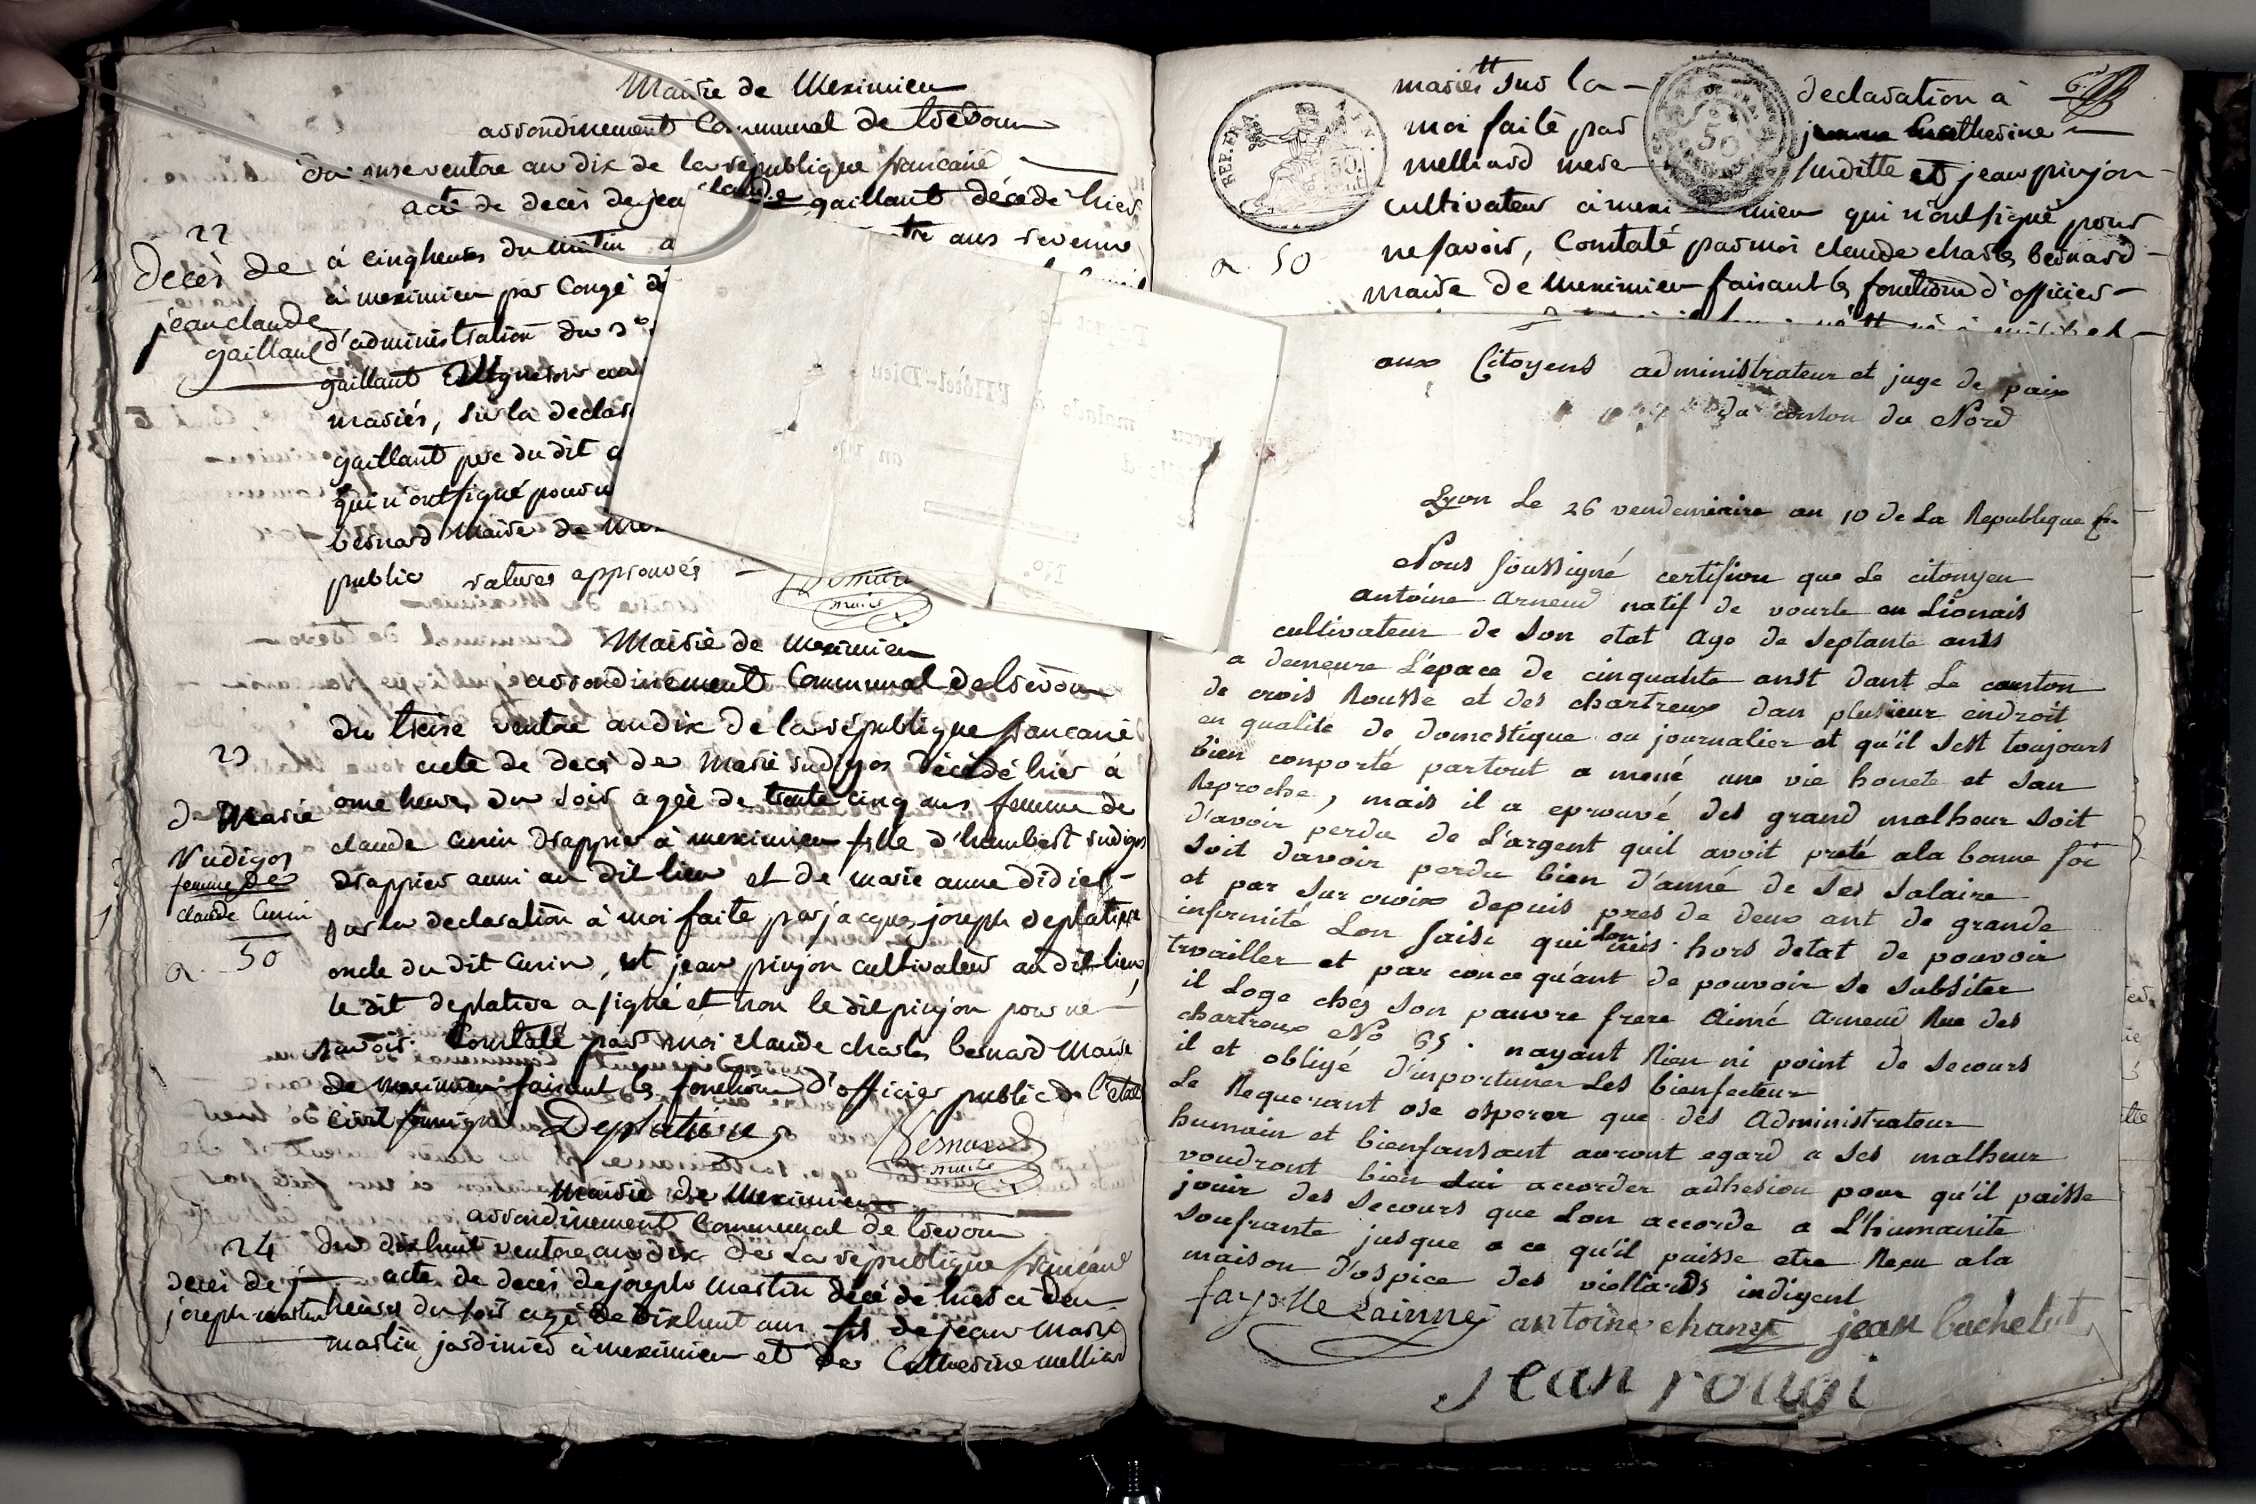 Mairie de Meximieu
arrondinement Communal de trevoux
du onse ventose an dix de la republique francaise
acte de deces de jean claude gaillant décédé hier
à cinq heures du matin a tre ans revenu
à meximieu par Congé de
d'administration du 3e
gaillant Vigneron au
mariés, sur la declar
gaillant pere du dit g
qui n'ont signé pour n
bernard Maire de Mex
public ratures approuvés
Bernard
maire
22
Deces de
jean claude
gaillant
Mairie de meximieu
arrondinement Communal de trevoux
du treise ventose an dix de la république francaise
acte de deces de Marie rudigos décédé hier a
onse heures du soir agée de trente cinq ans femme de
claude Cunin drappier à meximieu fille d'humbert rudigos
drappier aussi au dit lieu et de marie anne didier
sur la declaration à moi faite par jacques joseph deplatiere
oncle du dit Cunin, et jean pinjon cultivateur au dit lieu
le dit deplatiere a signé et non le dit pinjon pour ne
savoir. Constaté par moi claude charles bernard Maire
de meximieu faisant les fonctions d'officier public de l'etat
civil soussigné Deplatiere
Bernard
maire
23
d Marie
rudigos
femme de
claude Cunin
50
Mairie de Meximieu
arrondinement Communal de trevoux
du dixhuit ventose an dix de la république francaise
acte de deces de joseph martin décédé hier à deux
heures du soir agé de dixhuit ans fils de jean marie
martin jardinier à meximieu et de Catherine melliard
24
deces de
joseph martin
mariés sur la declaration à
moi faite par Catherine
melliard mere susditte et jean pinjon
cultivateur à meximieu qui n'ont signé pour
ne savoir, Constaté par moi claude charles bernard
maire de meximieu faisant les fonctions d'officier
REP. FRA.
50
50
a 50
aux Citoyens administrateur et juge de paix
du canton du Nord
Lyon Le 26 vendemiaire an 10 de La Republique fr.
Nous soussigné certifion que Le citoyen
antoine arneud natif de vourle en Lionais
cultivateur de son etat age de septante anss
a demeure L'epace de cinquante anst dant Le canton
de croix Rousse et des chartreux dan plusieur endroit
en qualite de domestique ou journalier et qu'il sest toujours
bien conporté partout a mené une vie honete et san
Reproche, mais il a eprouvé des grand malheur soit
d'avoir perdu de L'argent quil avoit preté ala bonne foi
soit davoir perdu bien d'anné de ses salaire
et par sur croix depuis pres de deux ant de grande
infirmité Lon saisi qui Lon mis hors detat de pouvoir
travailler et par conce qu'ant de pouvoir se subsiter
il Loge ches son pauvre frere Aimé Arneud Rue des
chartreux No 65. nayant Rien ni point de secours
il et obligé d'inportuner Les bienfecteur
Le Requerant ose esperer que des Administrateur
humain et bienfansant auront egard a ses malheur
voudront bien Lui accorder adhesion pour qu'il puisse
jouir des secours que Lon accorde a L'humanite
soufrante jusque a ce qu'il puisse etre Reçu a la
maison d'ospice des viellards indigent
fayolle Lainné antoine chany jean bachelut
jean rougi